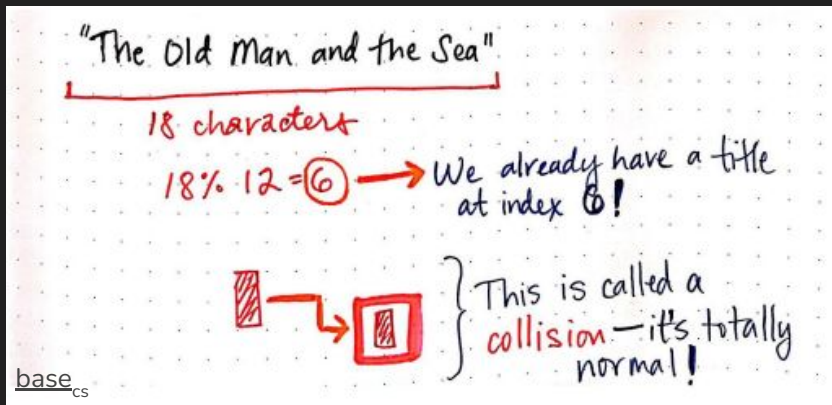 "The Old Man and the Sea"
18 characters
18% 12 = 6 → We already have a title
at index 6!
This is called a
collision – it's totally
normal!
base cs